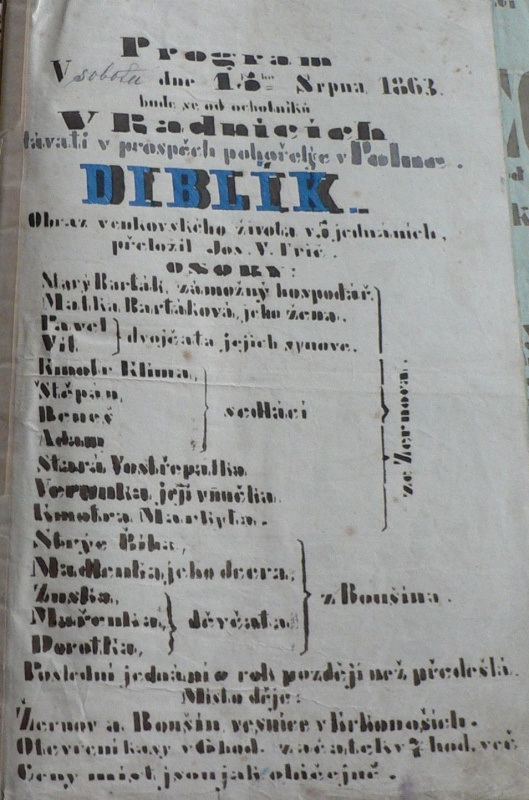 Program
V sobotu dne 15ho Srpna 1863.
bude se od ochotníků
V Radnicích
dávati v prospěch pohořelýc v Polné.
DIBLÍK.
Obraz venkovského života v 5 jednáních,
přeložil Jos. V. Frič.
OSOBY:
Starý Barták, zámožný hospodář.
Matka Bartáková, jeho žena.
Pavel
Vít
dvojčata jejich synové.
Kmotr Klíma,
Štěpán,
Beneš
Adam
sedláci
Stará Vostřepalka
Verunka, její vnučka.
Kmotra Markyta.
ze Žernova.
Strýc Říha,
Madlenka, jeho dcera,
Zuzka,
Mařenka,
Dorotka,
děvčata,
z Boušína.
Poslední jednání o rok později než předešlá.
Místo děje:
Žernov a Boušín, vesnice v Krkonoších.
Otevření kasy v 6 hod. začátek v 7 hod. več
Ceny míst jsou jak običejně.